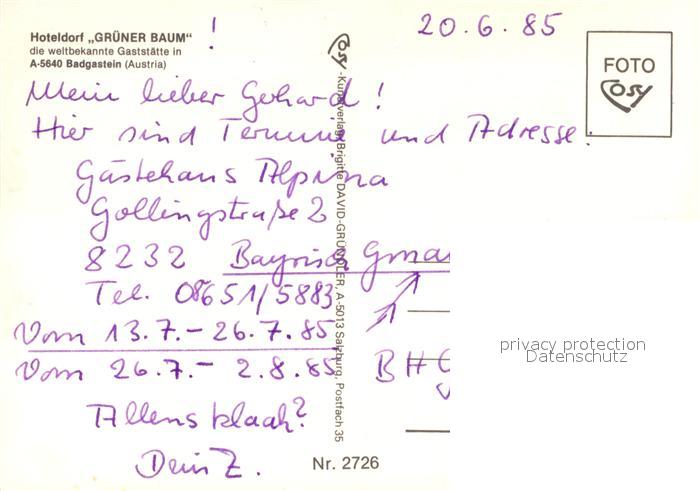 20.6.85
Hoteldorf „GRÜNER BAUM" !
die weltbekannte Gaststätte in
A-5640 Badgastein (Austria)
FOTO
Cosy
Mein lieber Gehard!
Hier sind Termine und Adresse:
Gästehaus Alpina
Gollingstraße 2
8232 Bayrisch Gmai
Tel. 08651/5883
Vom 13.7.- 26.7.85
Vom 26.7.- 2.8.85 BHG
Allens klaah?
Dein Z.
Cosy -Kunstverlag Brigitte DAVID-GRÜNDLER, A-5013 Salzburg, Postfach 35
Nr. 2726
privacy protection
Datenschutz